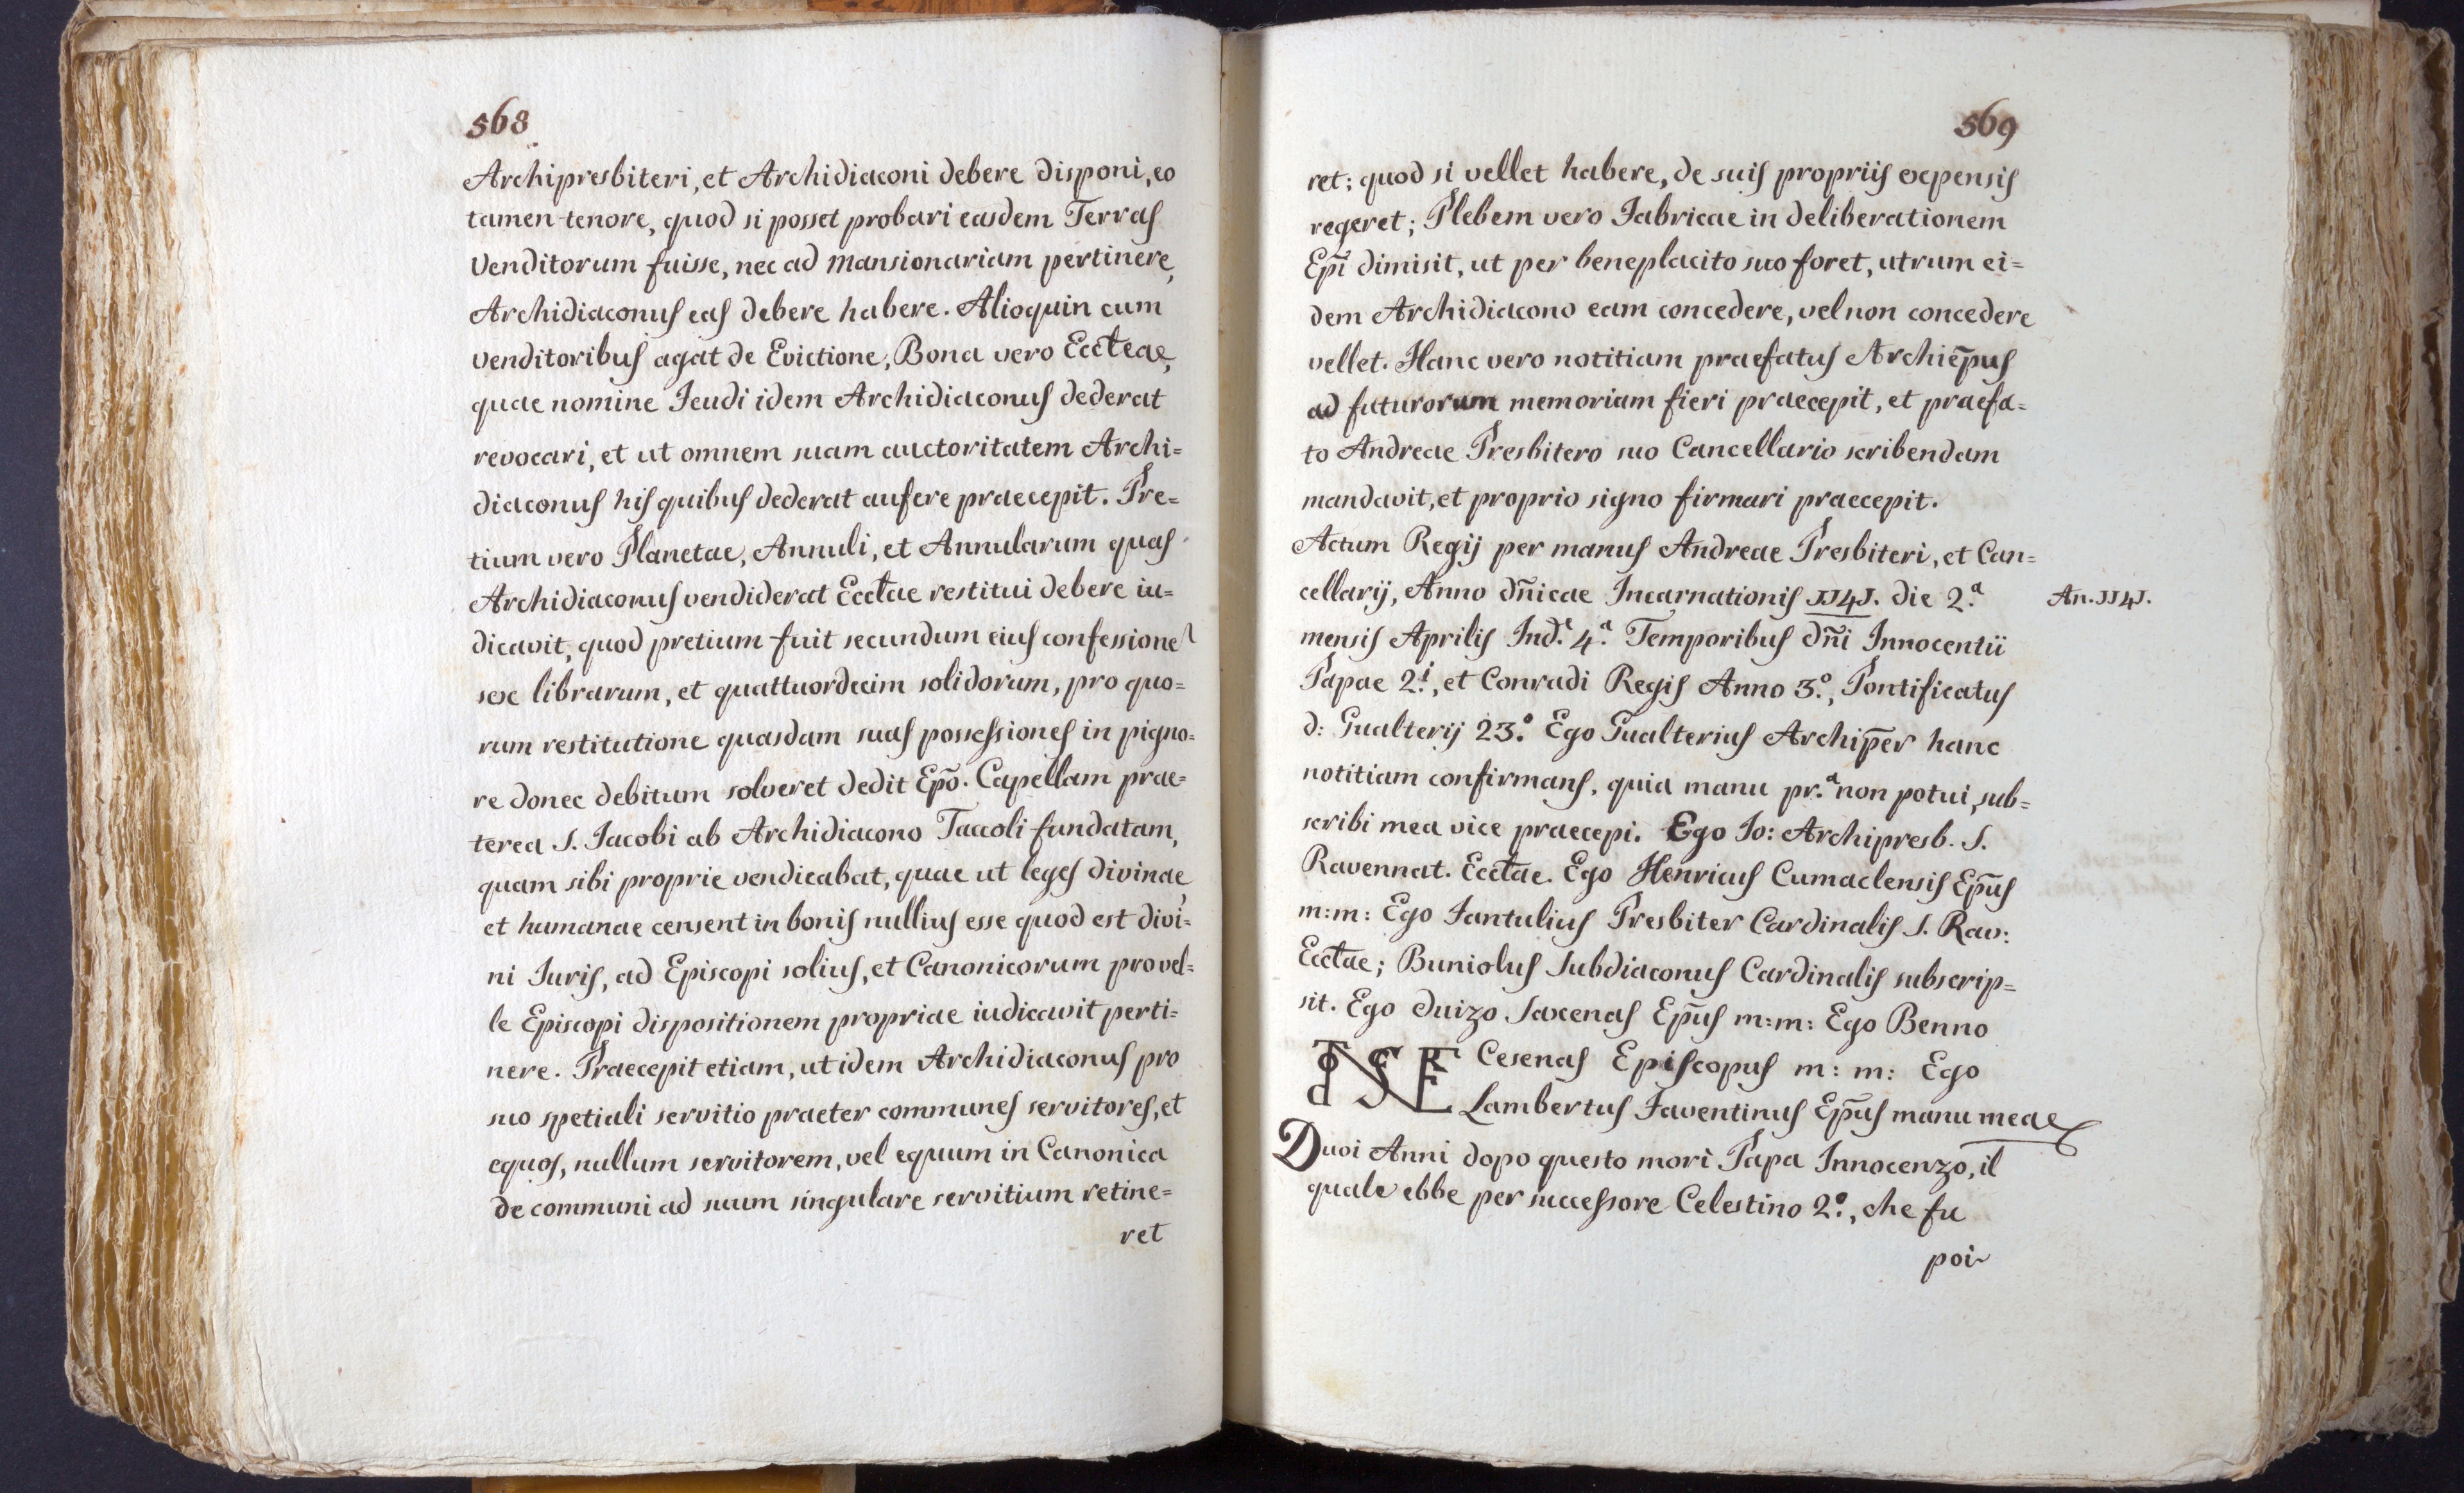 568
Archipresbiteri, et Archidiaconi debere disponi, eo
tamen tenore, quod si posset probari easdem Terras
Venditorum fuisse, nec ad mansionariam pertinere,
Archidiaconus eas debere habere. Alioquin cum
venditoribus agat de Evictione, Bona vero Eccleae,
quae nomine Feudi idem Archidiaconus dederat
revocari, et ut omnem suam auctoritatem Archi=
diaconus his quibus dederat aufere praecepit. Pre=
tium vero Planetae, Annuli, et Annularum quas
Archidiaconus vendiderat Ecclae restitui debere iu=
dicavit, quod pretium fuit secundum eius confessione
sex librarum, et quattuordecim solidorum, pro quo=
rum restitutione quasdam suas possessiones in pigno=
re donec debitum solveret dedit Epō. Capellam prae=
terea S. Iacobi ab Archidiacono Taccoli fundatam,
quam sibi proprie vendicabat, quae ut leges divinae
et humanae censent in bonis nullius esse quod est divi=
ni Iuris, ad Episcopi solius, et Canonicorum pro vel=
le Episcopi dispositionem propriae iudicavit perti=
nere. Praecepit etiam, ut idem Archidiaconus pro
suo spetiali servitio praeter communes servitores, et
equos, nullum servitorem, vel equum in Canonica
de communi ad suum singulare servitium retine=
ret
569
ret; quod si vellet habere, de suis propriis expensis
regeret; Plebem vero Fabricae in deliberationem
Epī dimisit, ut per beneplacito suo foret, utrum ei=
dem Archidiacono eam concedere, vel non concedere
vellet. Hanc vero notitiam praefatus Archiēpus
ad futurorum memoriam fieri praecepit, et praefa=
to Andreae Presbitero suo Cancellario scribendam
mandavit, et proprio signo firmari praecepit.
Actum Regij per manus Andreae Presbiteri, et Can=
cellarij, Anno dn̄icae Incarnationis 1141. die 2.ª
An. 1141.
mensis Aprilis Ind.e 4.ª Temporibus dn̄i Innocentii
Papae 2.i, et Conradi Regis Anno 3.º, Pontificatus
d: Gualterij 23.º Ego Gualterius Archip̄er hanc
notitiam confirmans, quia manu pr.ª non potui, sub=
scribi mea vice praecepi. Ego Io: Archipresb. S.
Ravennat. Ecclae. Ego Henricus Cumaclensis Ep̄us
m:m: Ego Fantulius Presbiter Cardinalis S. Rav:
Ecclae; Buniolus Subdiaconus Cardinalis subscrip=
sit. Ego Duizo Saxenas Ep̄us m:m: Ego Benno
Cesenas Episcopus m: m: Ego
Lambertus Faventinus Ep̄us manu meae
Duoi Anni dopo questo morì Papa Innocenzo, il
quale ebbe per successore Celestino 2.º, che fu
poi